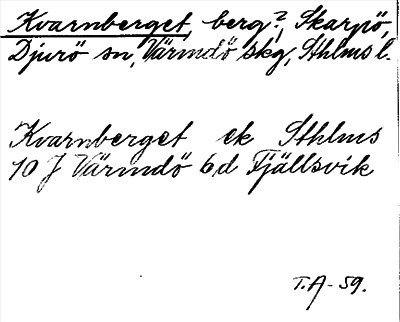 Kvarnberget, berg?, Skarpö,
Djurö sn, Värmdö skg, Sthlms l.
Kvarnberget ek Sthlms
10 J Värmdö 6d Fjällsvik
T.A-59.